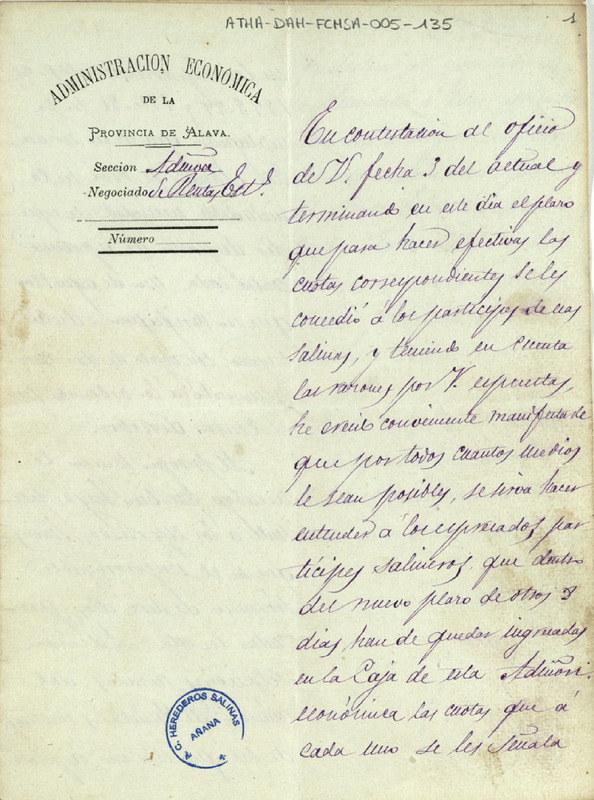 ATHA-DAH-FCMSA-005-135
1
ADMINISTRACION ECONÓMICA
DE LA
PROVINCIA DE ALAVA.
Seccion Admon
Negociado de Rentas Est.
Número
En contestacion al oficio
de V. fecha 3 del actual y
terminando en este dia el plazo
que para hacer efectivas las
cuotas correspondientes se les
concedió á los partícipes de esas
Salinas, y teniendo en cuenta
las razones por V. espuestas,
he creido conveniente manifestarle
que por todos cuantos medios
le sean posibles, se sirva hacer
entender á los espresados par
tícipes Salineros que dentro
del nuevo plazo de otros 8
dias, han de quedar ingresadas
en la Caja de esta Admon
económica las cuotas que á
cada uno se les señala
C. HEREDEROS SALINAS
AÑANA